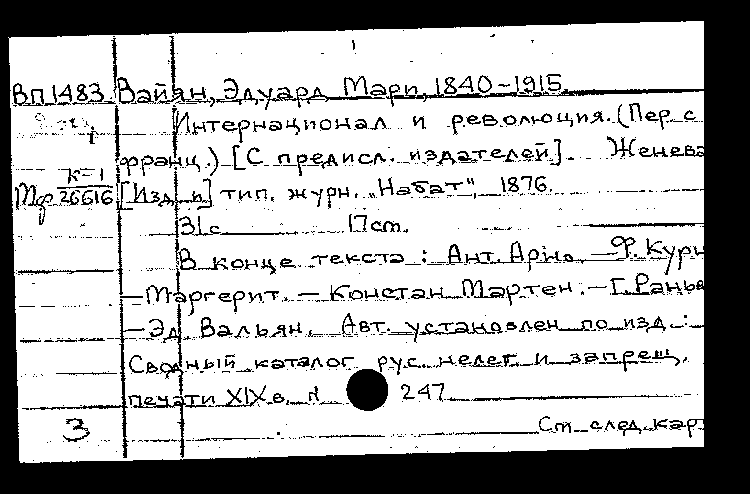 Вп 1483 Вайян, Эдуард Мари, 1840-1915.
Интернационал и революция. (Пер с
франц.) [С предисл. издателей]. Женева
к-1
Мф 26616 [Изд. и] тип. журн. „Набат", 1876.
31с. 17см.
В конце текста : Ант. Арно. – Ф. Курн
– Маргерит. – Констан Мартен. – Г. Ранье
– Эд Вальян. Авт. установлен по изд. :
Сводный каталог рус. нелег. и запрещ.
печати XIX в. 247
3 См след. кар